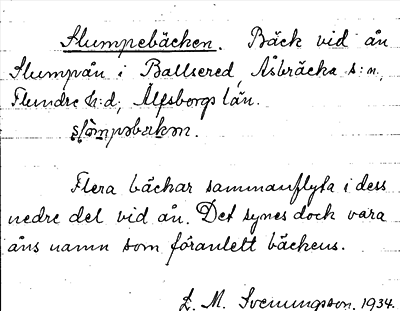 Slumpebäcken. Bäck vid ån
Slumpån i Ballsered Åsbräcka s:n,
Flundre h:d, Älfsborgs län.
slòmpəbɛkən.
Flera bäckar sammanflyta i dess
nedre del vid ån. Det synes dock vara
åns namn som föranlett bäckens.
L. M. Svenungson. 1934.